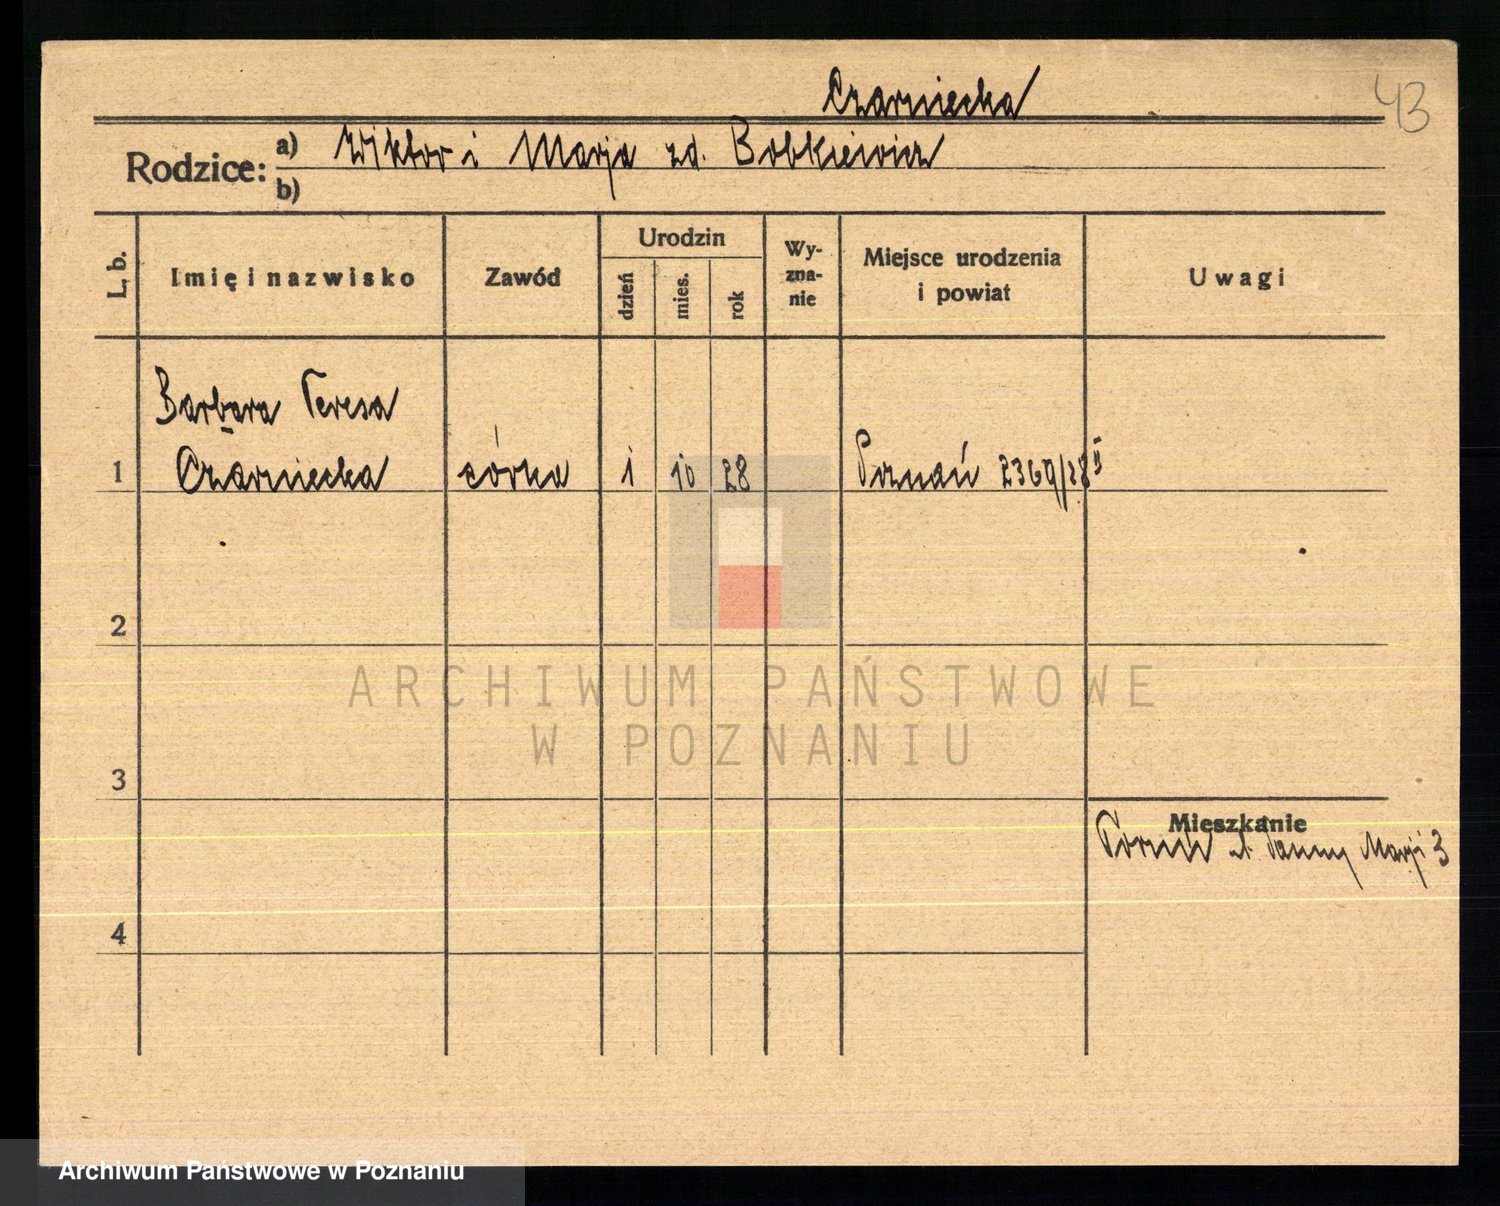 Czarniecka
43
Rodzice: a) Wiktor i Marja zd. Bobkiewicz
b)
L. b. Imię i nazwisko Zawód Urodzin dzień mies. rok Wy-zna-nie Miejsce urodzenia i powiat Uwagi
Barbara Teresa
1 Czarniecka córka 1 10 28 Poznań 2369/28 II
2
ARCHIWUM PAŃSTWOWE
W POZNANIU
3
Mieszkanie
Toruń ul. Panny Marji 3
4
Archiwum Państwowe w Poznaniu